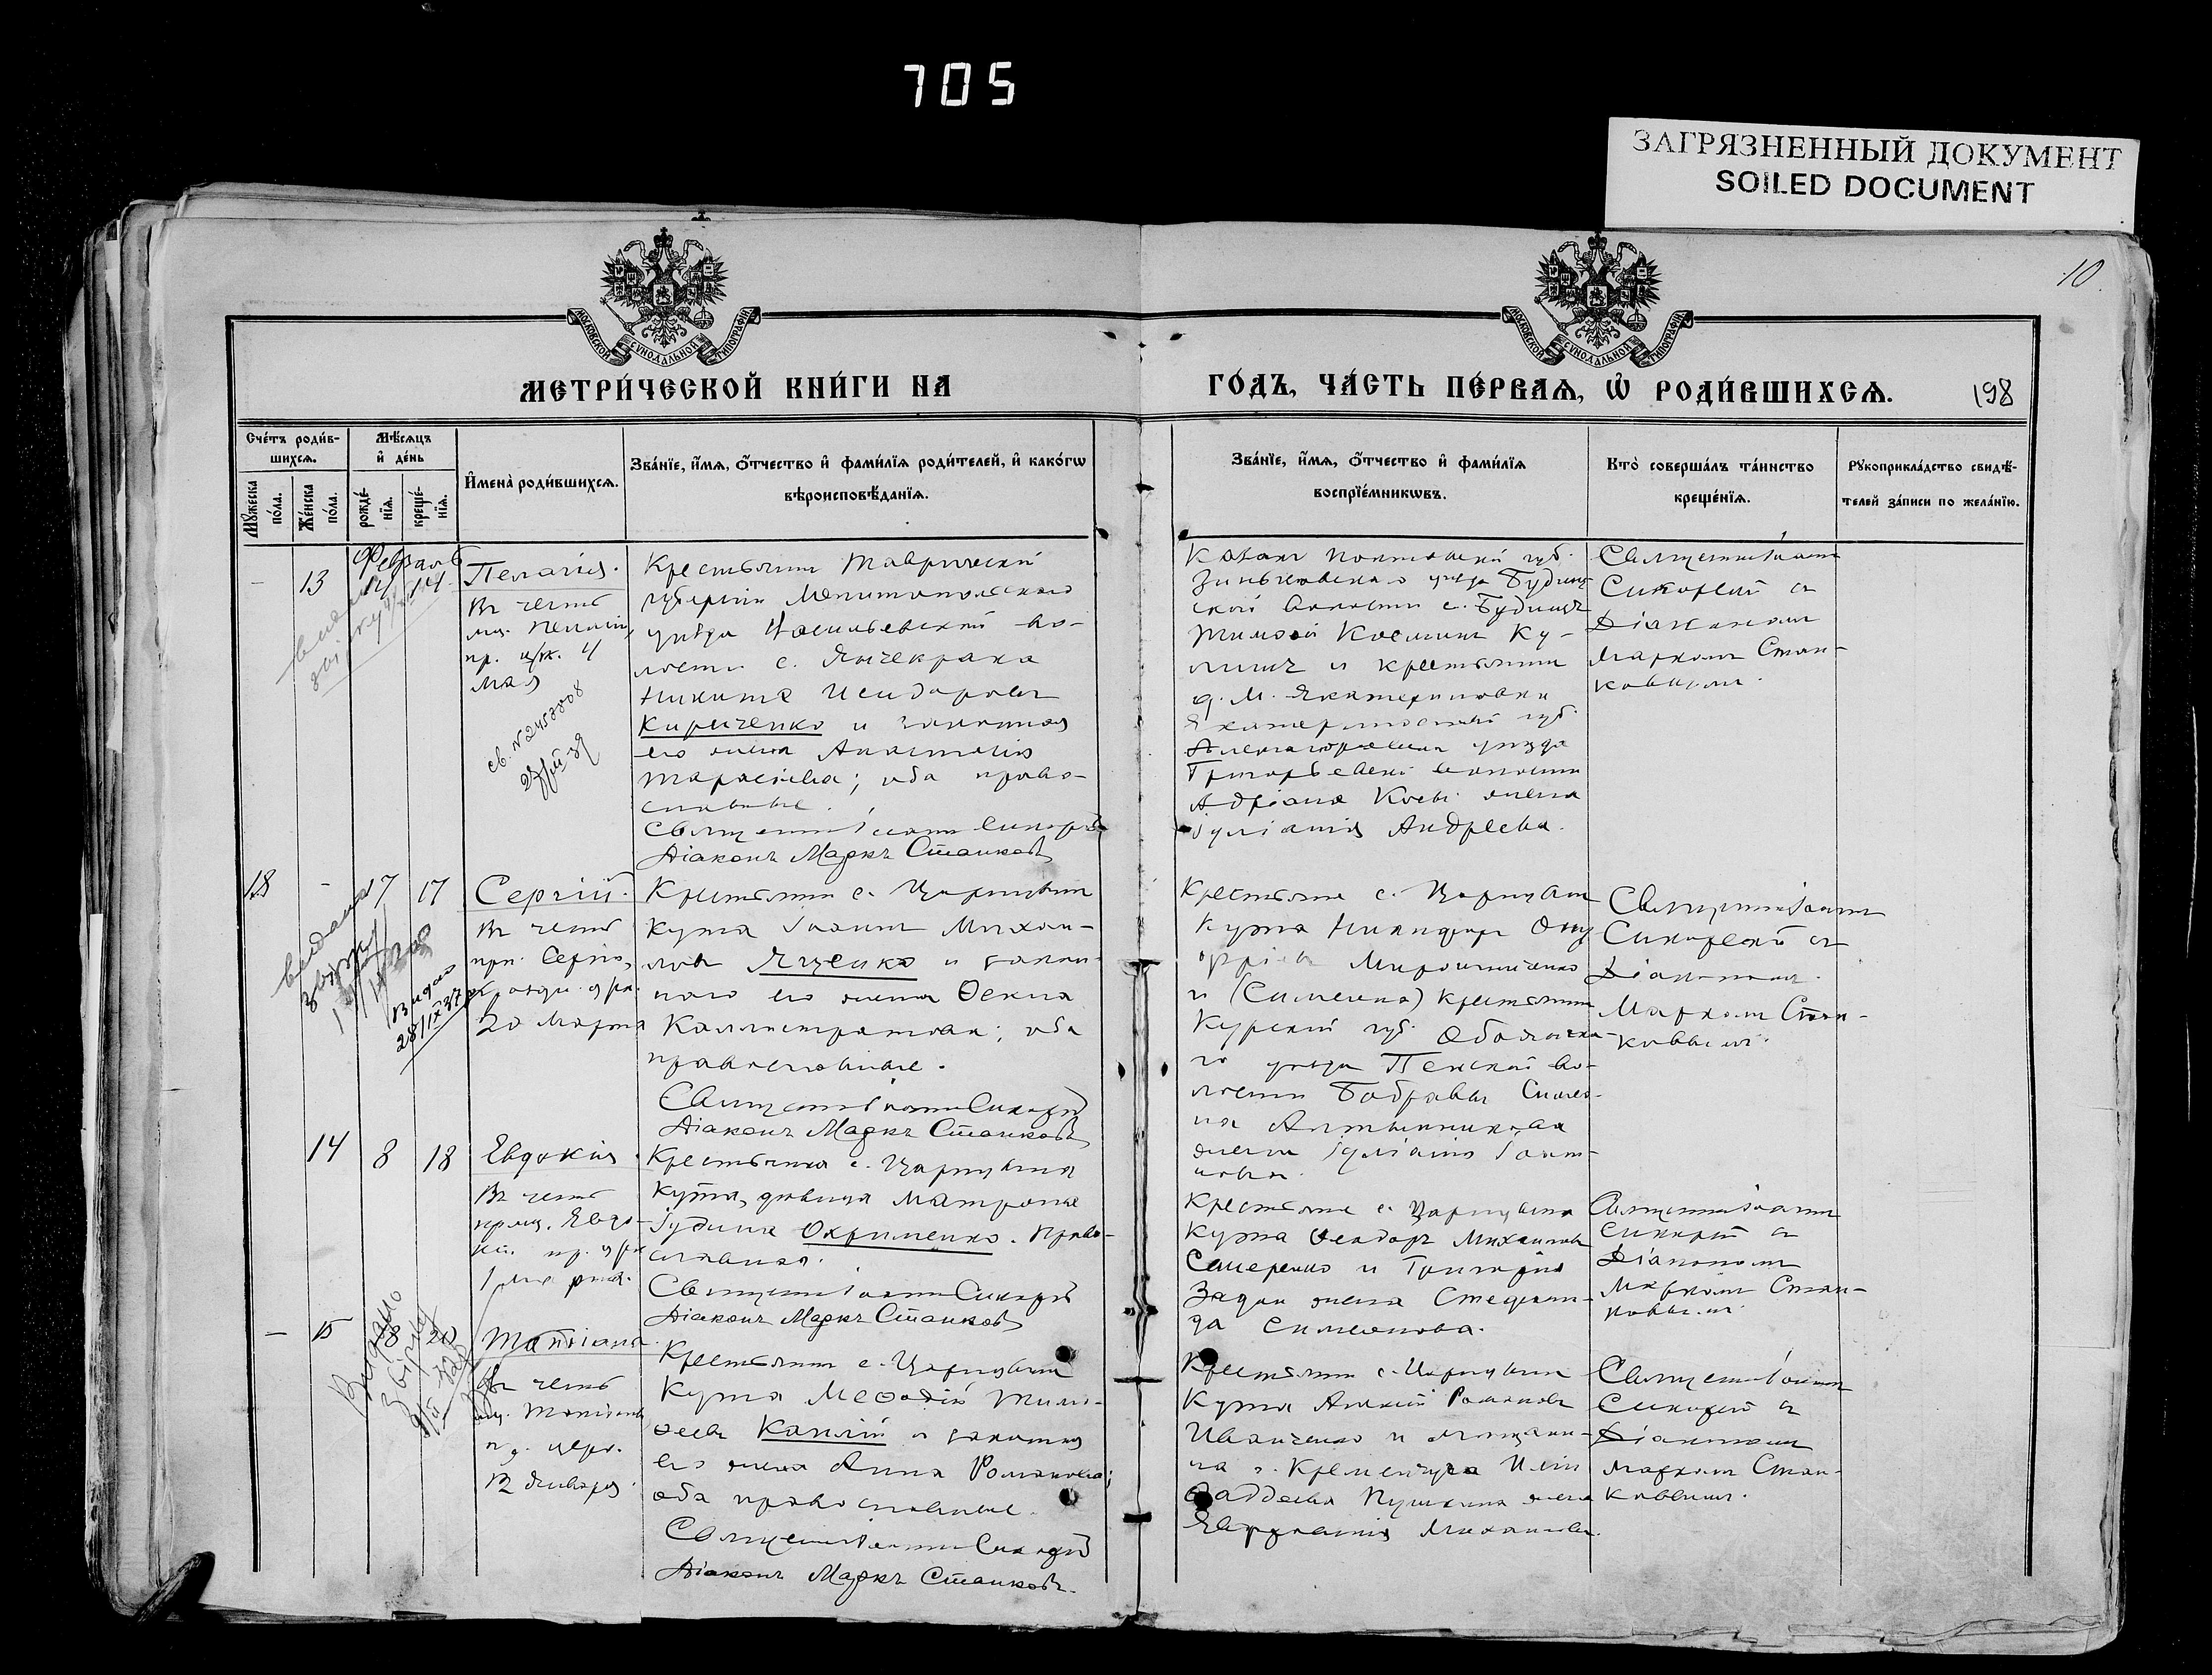 705
ЗАГРЯЗНЕННЫЙ ДОКУМЕНТ
SOILED DOCUMENT
10
МОСКОВСКОЙ СѴНОДАЛЬНОЙ ТИПОГРАФІИ
МОСКОВСКОЙ СѴНОДАЛЬНОЙ ТИПОГРАФІИ
МЕТРИ́ЧЕСКОЙ КНИ́ГИ НА
ГО́ДЪ, ЧА́СТЬ ПЕ́РВАѦ, Ѡ҆ РОДИ́ВШИХСѦ.
198
Сче́тъ роди́в-
шихсѧ.
Мѣ́сѧцъ
и҆ де́нь
Мꙋ́жеска по́ла.
Же́нска по́ла.
рожде́-
нїѧ.
креще́-
нїѧ.
И҆мена̀ роди́вшихсѧ.
Зва́нїе, и҆́мѧ, ѻ҆́тчество и҆ фами́лїѧ роди́телей, и҆ како́гѡ
вѣроисповѣ́данїѧ.
Зва́нїе, и҆́мѧ, ѻ҆́тчество и҆ фами́лїѧ
воспрїе́мникѡвъ.
Кто̀ соверша́лъ та́инство
креще́нїѧ.
Рꙋкоприкла́дство свидѣ́-
телей за́писи по жела́нїю.
Февраль
13 14 14
Пелагія.
Въ честь
мц. Пелагіи,
пр. 4
мая
Крестьянинъ Таврической
губерніи Мелитопольскаго
уѣзда Васильевской во-
лости с. Янчекрака
Никита Исидоровъ
Кириченко и законная
его жена Анастасія
Тарасіева; оба право-
славные.
Священникъ Іоаннъ Сикорскій
Діаконъ Маркъ Станковъ
Козакъ Полтавской губ.
Зиньковскаго уѣзда Будищ-
ской волости с. Будищъ
Тимофей Косминъ Ку-
лишъ и крестьянина
д. М. Екатериновки
Екатеринославской губ.
Александровскаго уѣзда
Григорьевской волости
Адріана жена
Іуліанія Андреева.
Священникъ Іоаннъ
Сикорскій съ
Діакономъ
Маркомъ Стан-
ковымъ.
18 - 17 17
Сергій.
Въ честь
прп. Сергія,
20 Марта
Крестьянинъ с. Царицына
Кута Іоаннъ Михаи-
ловъ Яценко и закон-
ная его жена Ѳекла
Каллистратова; оба
православные.
Священникъ Іоаннъ Сикорскій
Діаконъ Маркъ Станковъ
Крестьяне с. Царицына
Кута Никифоръ Ону-
фріевъ Мирошниченко
и (Симеона) крестьянина
Курской губ. Обоянска-
го уѣзда Пенской во-
лости Бобравы Симео-
на
жена Іуліанія Іоан-
нова.
Священникъ Іоаннъ
Сикорскій съ
Діакономъ
Маркомъ Стан-
ковымъ.
14 8 18
Евдокія.
Въ честь
прмц. Евдо-
кіи пр.
1 марта.
Крестьянка с. Царицына
Кута, дѣвица Матрона
Іудина Охрименко. Право-
славная.
Священникъ Іоаннъ Сикорскій
Діаконъ Маркъ Станковъ
Крестьяне с. Царицына
Кута Ѳеодоръ Михаиловъ
и Григорія
жена Стефани-
да Симеонова.
Священникъ Іоаннъ
Сикорскій съ
Діакономъ
Маркомъ Стан-
ковымъ.
- 15
Татіана.
Въ честь
мц. Татіаны
пр. церк.
12 Января.
Крестьянинъ с. Царицына
Кута Меѳодій Тимо-
ѳеевъ Каплій и законная
его жена Анна Романова;
оба православные.
Священникъ Іоаннъ Сикорскій
Діаконъ Маркъ Станковъ.
Крестьянинъ с. Царицына
Кута Романовъ
Иванченко и мѣщани-
на г. Кременчуга
Ѳаддеева Пушкина жена
Михаилова.
Священникъ Іоаннъ
Сикорскій съ
Діакономъ
Маркомъ Стан-
ковымъ.